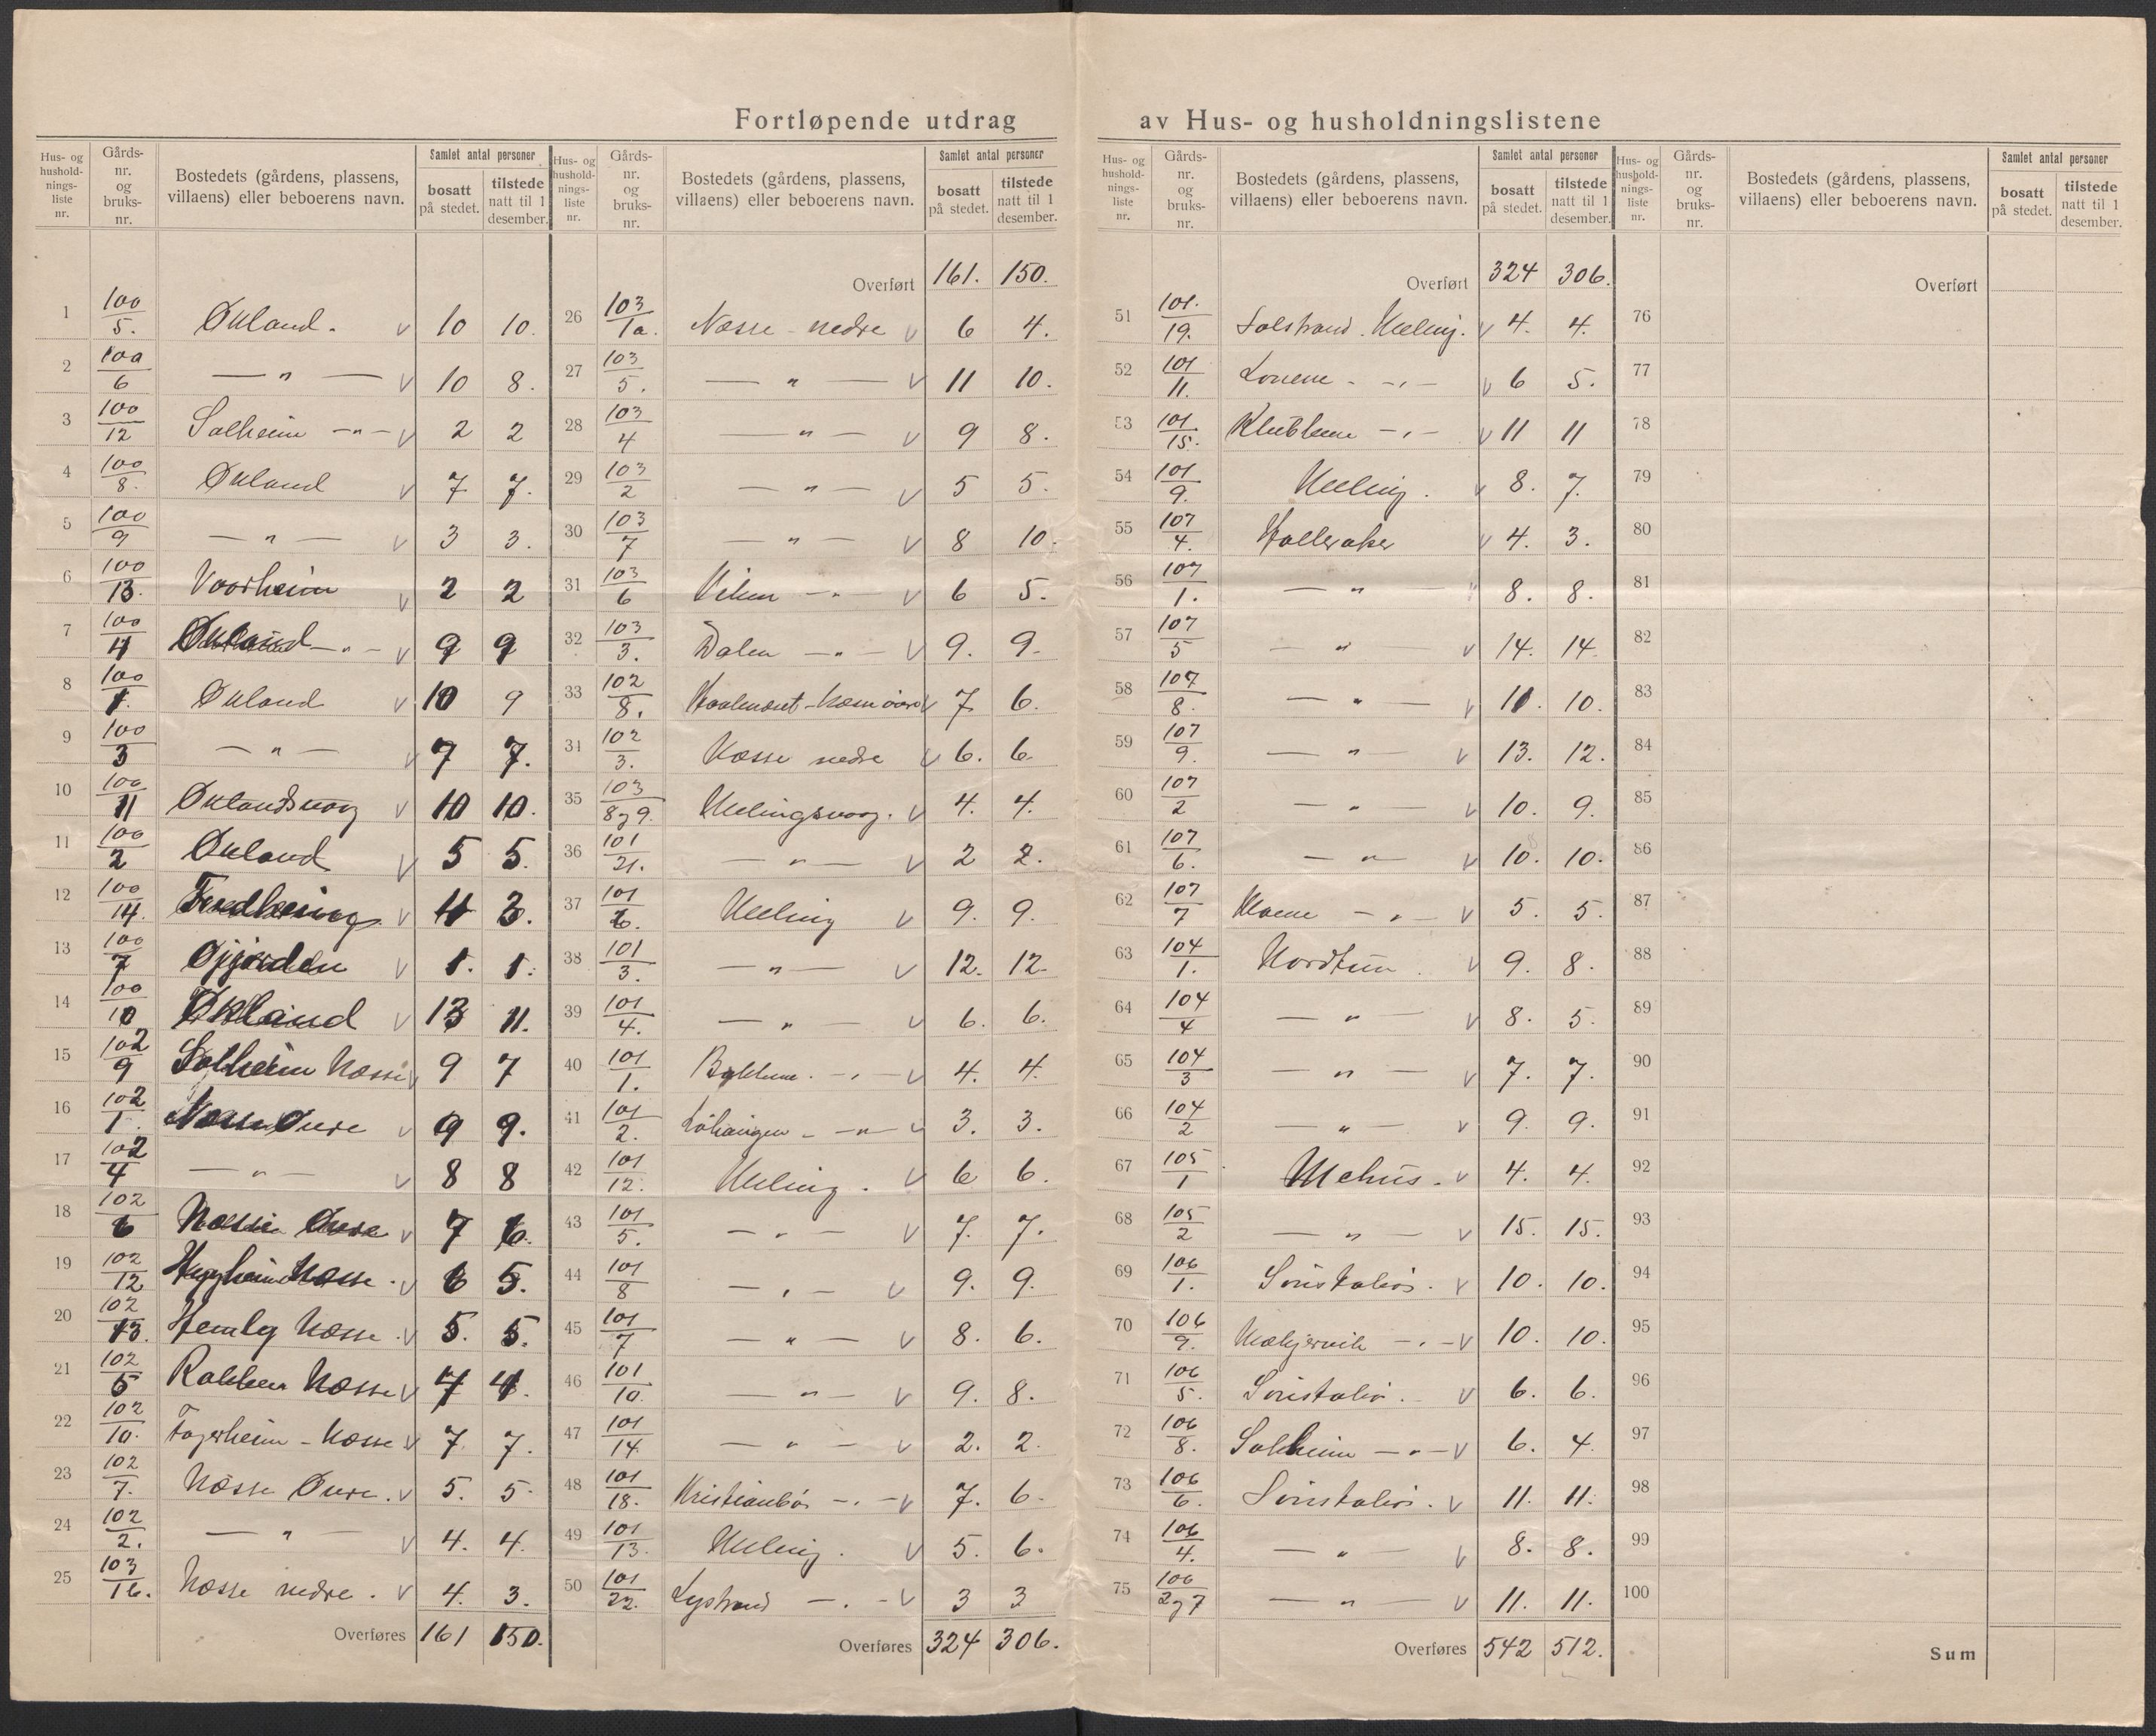 Fortløpende utdrag av Hus- og husholdningslistene
Hus- og husholdnings-liste nr. | Gårds-nr. og bruks-nr. | Bostedets (gårdens, plassens, villaens) eller beboerens navn. | Samlet antal personer bosatt på stedet. | tilstede natt til 1 desember.
1 100/5. Økland. v 10 10.
2 100/6 — „ — v 10 8.
3 100/12 Solheim -„- v 2 2
4 100/8. Økland v 7 7.
5 100/9 — „ — v 3 3.
6 100/13. Voorheim v 2 2
7 100/4 Økland -„- v 9 9
8 100/1. Økland v 10 9
9 100/3 — „ — v 7 7.
10 100/11 Øklandsvaag v 10 10.
11 100/2 Økland v 5 5.
12 100/14. v 4 3.
13 100/7 v 1. 1.
14 100/10 Økland v 13 11.
15 102/9 Solheim Næsse v 9 7
16 102/1. Næsse Øvre v 9 9.
17 102/4 — „ — v 8 8
18 102/6 Næsse Øvre v 7 6.
19 102/12 Næsse. v 6 5.
20 102/13. Næsse. v 5. 5.
21 102/5 Rakken Næsse v 7 4.
22 102/10. Fagerheim - Næsse v 7. 7.
23 102/7. Næsse Øvre. v 5. 5.
24 102/2. — „ — v 4. 4.
25 103/1b. Næsse nedre. v 4. 3.
Overføres 161 150.
Hus- og husholdnings-liste nr. | Gårds-nr. og bruks-nr. | Bostedets (gårdens, plassens, villaens) eller beboerens navn. | Samlet antal personer bosatt på stedet. | tilstede natt til 1 desember.
Overført 161. 150.
26 103/1a. Næsse - nedre v 6 4.
27 103/5. — „ — v 11 10.
28 103/4 — „ — v 9 8.
29 103/2 — „ — v 5 5.
30 103/7 — „ — v 8 10.
31 103/6 Viken -„- v 6 5.
32 103/3. Dalen -„- v 9. 9.
33 102/8. v 7 6.
34 102/3. Næsse nedre v 6. 6.
35 103/8 og 9. Mælingsvaag. v 4. 4.
36 101/21. — „ — v 2 2.
37 101/6. Mæling v 9. 9.
38 101/3. — „ — v 12. 12.
39 101/4. — „ — v 6. 6.
40 101/1. Bakkene. -„- v 4. 4.
41 101/2. -„- v 3. 3.
42 101/12. Mæling. v 6 6.
43 101/5. — „ — v 7. 7.
44 101/8 — „ — v 9. 9.
45 101/7 — „ — v 8. 6.
46 101/10. — „ — v 9. 8.
47 101/14 — „ — v 2. 2.
48 101/18. Kristianbø -„- v 7. 6.
49 101/13. Mæling. v 5. 6.
50 101/22. Lystrand -„- v 3 3
Overføres 324 306.
Hus- og husholdnings-liste nr. | Gårds-nr. og bruks-nr. | Bostedets (gårdens, plassens, villaens) eller beboerens navn. | Samlet antal personer bosatt på stedet. | tilstede natt til 1 desember.
Overført 324 306.
51 101/19. Solstrand. Mæling. v 4. 4.
52 101/11. -„- v 6 5.
53 101/15. -„- v 11 11
54 101/9. Mæling. v 8. 7.
55 107/4. Halleraker v 4. 3.
56 107/1. — „ — 8. 8.
57 107/5 — „ — v 14. 14.
58 107/8. — „ — v 10. 10.
59 107/9. — „ — v 13. 12.
60 107/2 — „ — v 10. 9.
61 107/6. — „ — v 10. 10.
62 107/7 -„- v 5. 5.
63 104/1. Nordtun v 9. 8.
64 104/4 — „ — v 8. 5.
65 104/3 — „ — v 7. 7.
66 104/2 — „ — v 9. 9.
67 105/1 Mehus. v 4. 4.
68 105/2 — „ — v 15. 15.
69 106/1. Sønstabø. v 10. 10.
70 106/9. -„- v 10. 10.
71 106/5. Sønstabø. v 6. 6.
72 106/8. Solheim -„- v 6. 4.
73 106/6. Sønstabø. v 11. 11.
74 106/4. — „ — v 8. 8.
75 106/2 og 7 — „ — v 11. 11.
Overføres 542 512.
Hus- og husholdnings-liste nr. | Gårds-nr. og bruks-nr. | Bostedets (gårdens, plassens, villaens) eller beboerens navn. | Samlet antal personer bosatt på stedet. | tilstede natt til 1 desember.
Overført
76
77
78
79
80
81
82
83
84
85
86
87
88
89
90
91
92
93
94
95
96
97
98
99
100
Sum